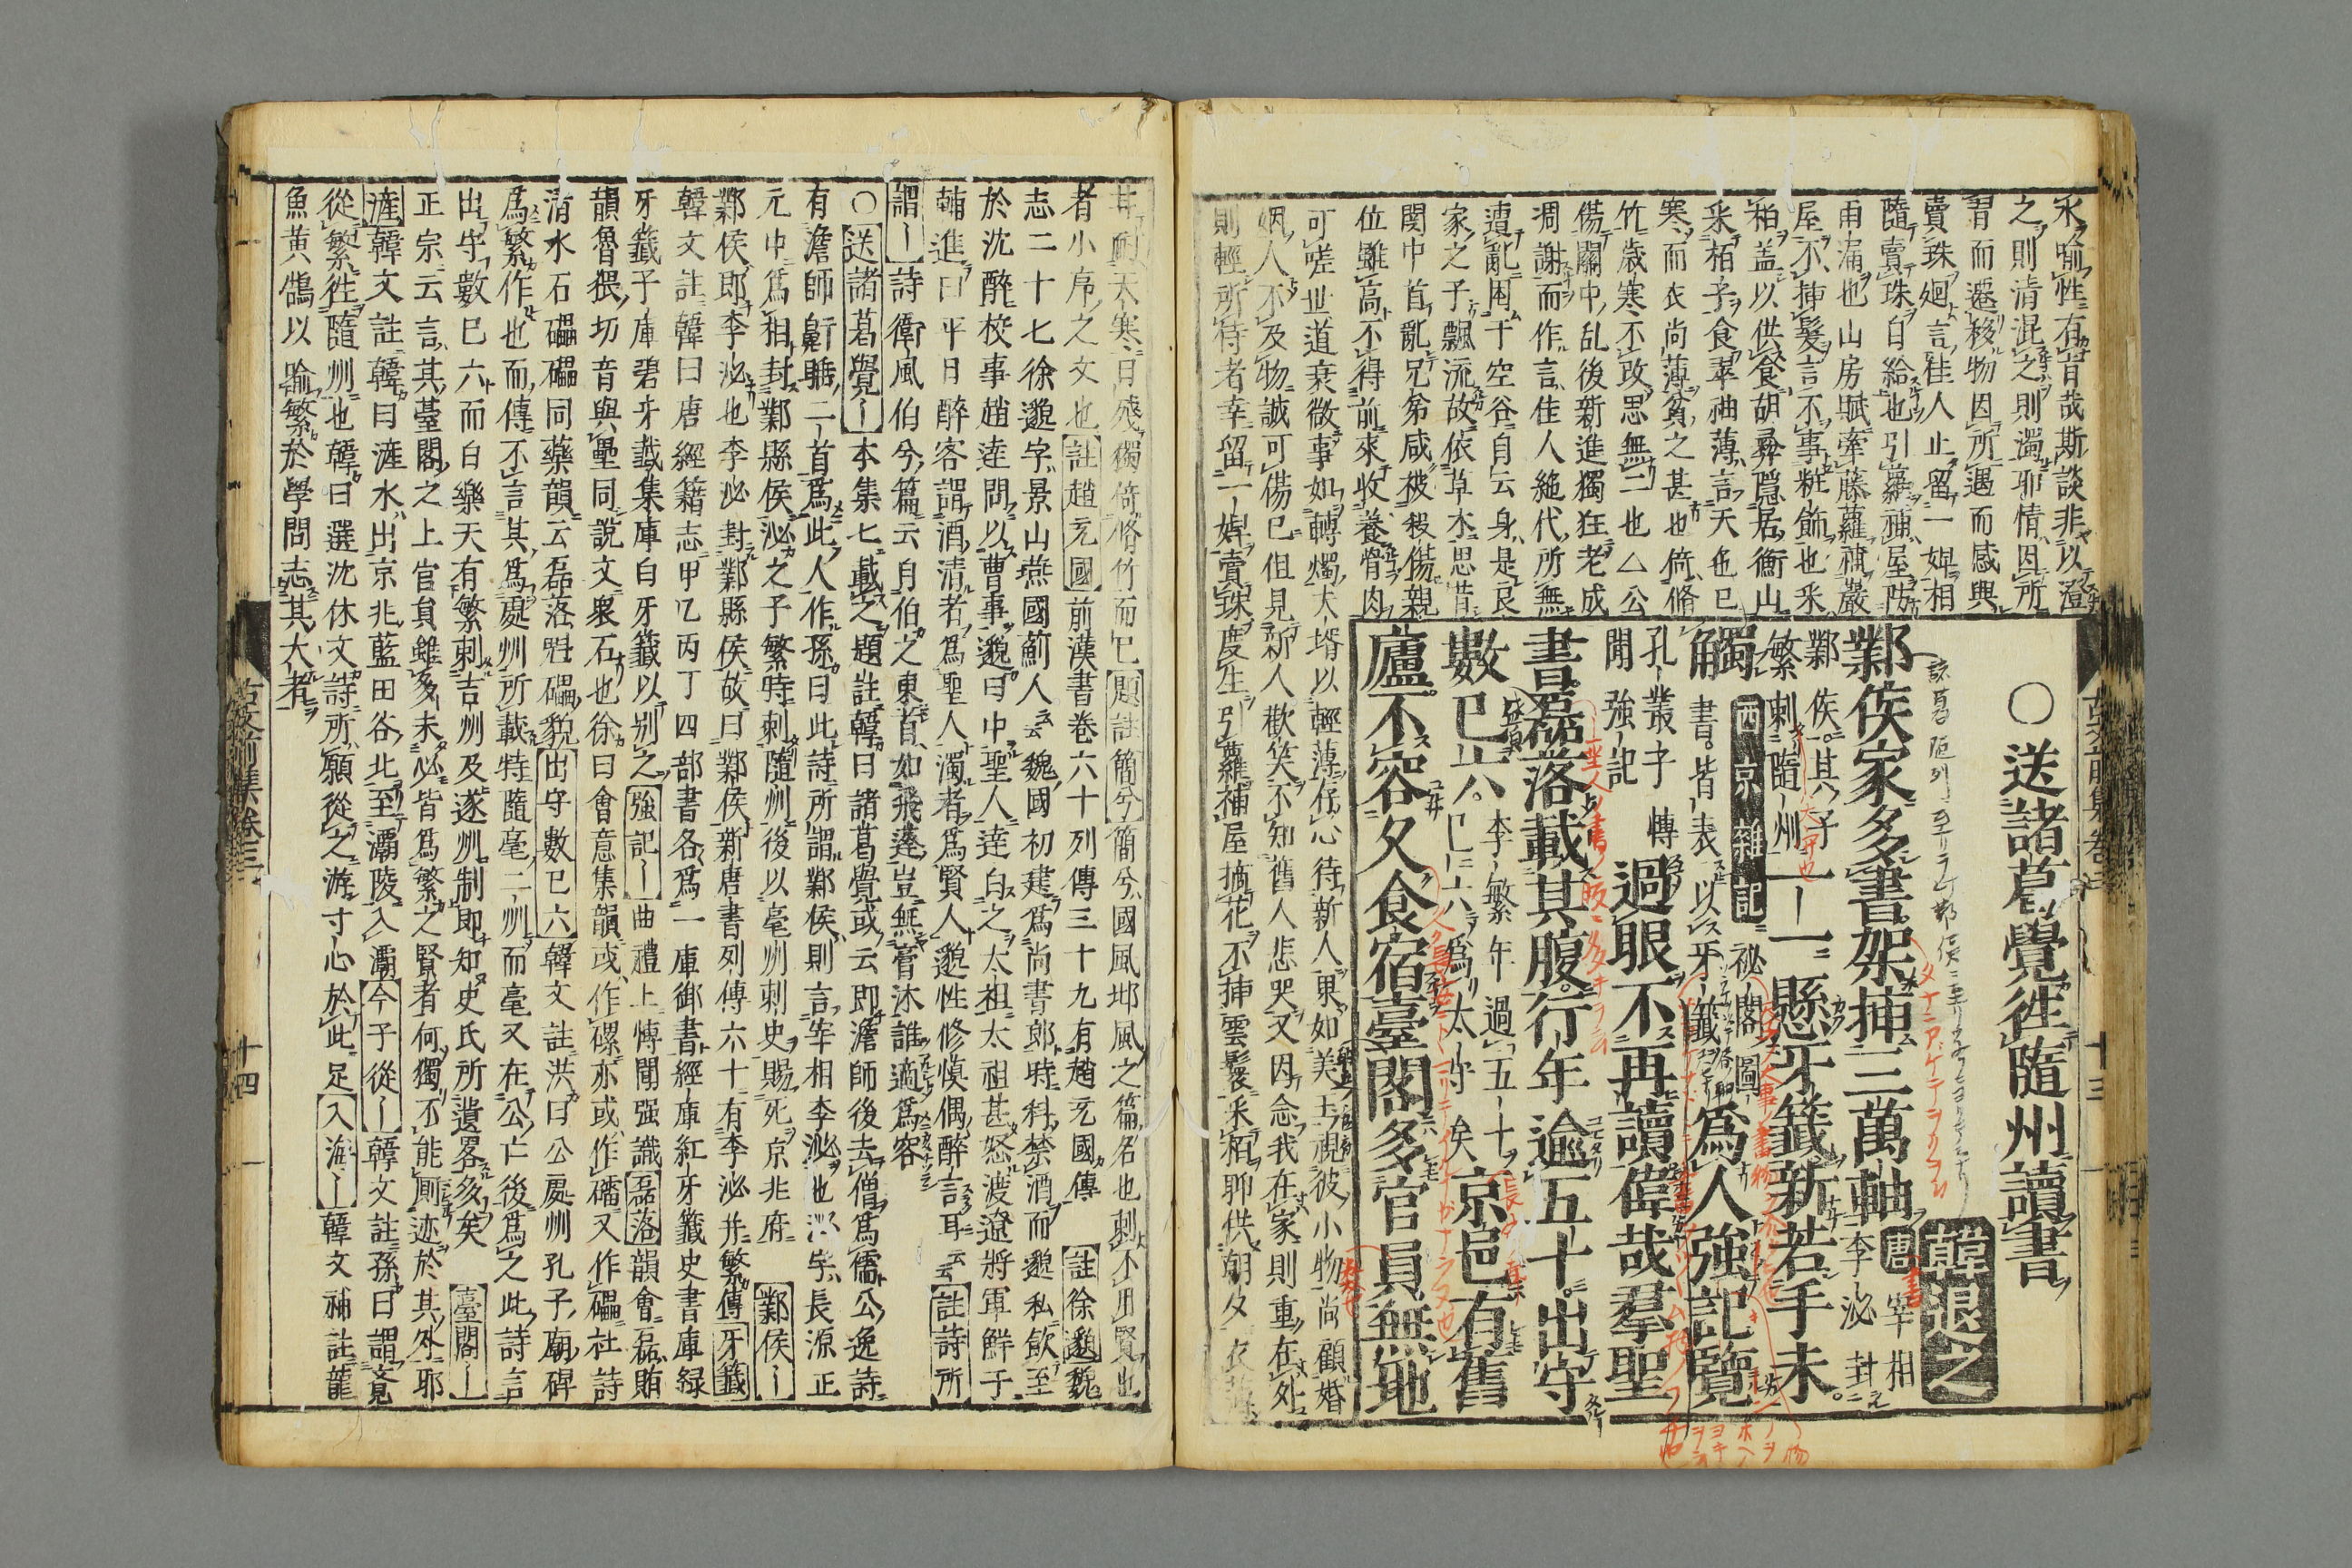 水喻性有旨哉斯談非以澄
之則清混之則濁耶情因所
習而遷移物因所遇而感興
賣珠廻言佳人止留一婢相
隨賣珠自給也引蘿補屋防
雨漏也山房賦牽藤蘿補巖
屋不挿髮言不事粧飾也采
栢盖以供食胡彛隱居衡山
采栢子食翠袖薄言天色已
寒而衣尚薄貧之甚也倚脩
竹歳寒不改思無二也△公
傷關中乱後新進獨狂老成
凋謝而作言佳人絶代所無
遭亂困于空谷自云身是良
家之子飄流故依草木思昔
関中首亂兄弟咸被殺傷親
位雖高不得前來收養骨肉
可嗟世道衰微事如轉燭夫壻以輕薄存心待新人果如美玉視彼小物尚顧婚
姻人不及物誠可傷已但見新人歡笑不知舊人悲哭又因念我在家則重在外
則輕所侍者幸留一婢賣珠度生引蘿補屋摘花不挿雲髮采栢聊供朝夕衣薄
古文前集卷三 十三
○送諸葛覺往隨州讀書
韓退之
鄴侯家多書架挿三萬軸唐書宰相李泌封
鄴侯其子繁刺隨州一一懸牙籤新若手未
觸西京雜記祕閣圖書皆表以牙籤爲人強記覽
孔叢子博聞強記過眼不再讀偉哉羣聖
書磊落載其腹行年逾五十出守
數已六李繁年過五十已六爲太守矣京邑有舊
廬不容久食宿臺閣多官員無地
甘耐天寒日殘獨倚脩竹而已題註簡兮簡兮國風邶風之篇名也刺不用賢也
者小序之文也註趙充國前漢書卷六十列傳三十九有趙充國傳 註徐邈魏
志二十七徐邈字景山燕國薊人云魏國初建爲尚書郎時科禁酒而邈私飲至
於沈醉校事趙達問以曹事邈曰中聖人達白之太祖太祖甚怒渡遼將軍鮮于
輔進曰平日醉客謂酒清者爲聖人濁者爲賢人邈性修愼偶醉言耳云云註詩所
謂ー詩衞風伯兮篇云自伯之東首如飛蓬豈無膏沐誰適爲容
○送諸葛覺ー本集七載之題註韓曰諸葛覺或云即澹師後去僧爲儒公逸詩
有澹師鼾睡二首爲此人作孫曰此詩所謂鄴侯則言宰相李泌也泌字長源正
元中爲相封鄴縣侯泌之子繁時刺隨州後以亳州刺史賜死京兆府 鄴侯ー
鄴侯即李泌也李泌封鄴縣侯故曰鄴侯新唐書列傳六十有李泌并繁傳牙籤
韓文註韓曰唐經籍志甲乙丙丁四部書各爲一庫御書經庫紅牙籤史書庫緑
牙籤子庫碧牙籤集庫白牙籤以别之強記ー曲禮上博聞强識磊落韻會磊賄
韻魯猥切音與壘同説文衆石也徐曰會意集韻或作磥亦或作礧又作礌杜詩
清水石礌礌同藥韻云磊落魁礌貌出守數已六韓文註洪曰公處州孔子廟碑
爲繁作也而傳不言其爲處州所載特隨亳二州而亳又在公亡後爲之此詩言
出守數已六而白樂天有繁刺吉州及遂州制即知史氏所遺畧多矣 臺閣ー
正宗云言其臺閣之上官員雖多未必皆爲繁之賢者何獨不能厠迹於其外耶
滻韓文註韓曰滻水出京兆藍田谷北至灞陵入灞今子從ー韓文註孫曰謂覺
從繁往隨州也韓曰選沈休文詩所願從之游寸心於此足入海ー韓文補註龍
魚黄鵠以喻繁於學問志其大者
古文前集卷三 十四